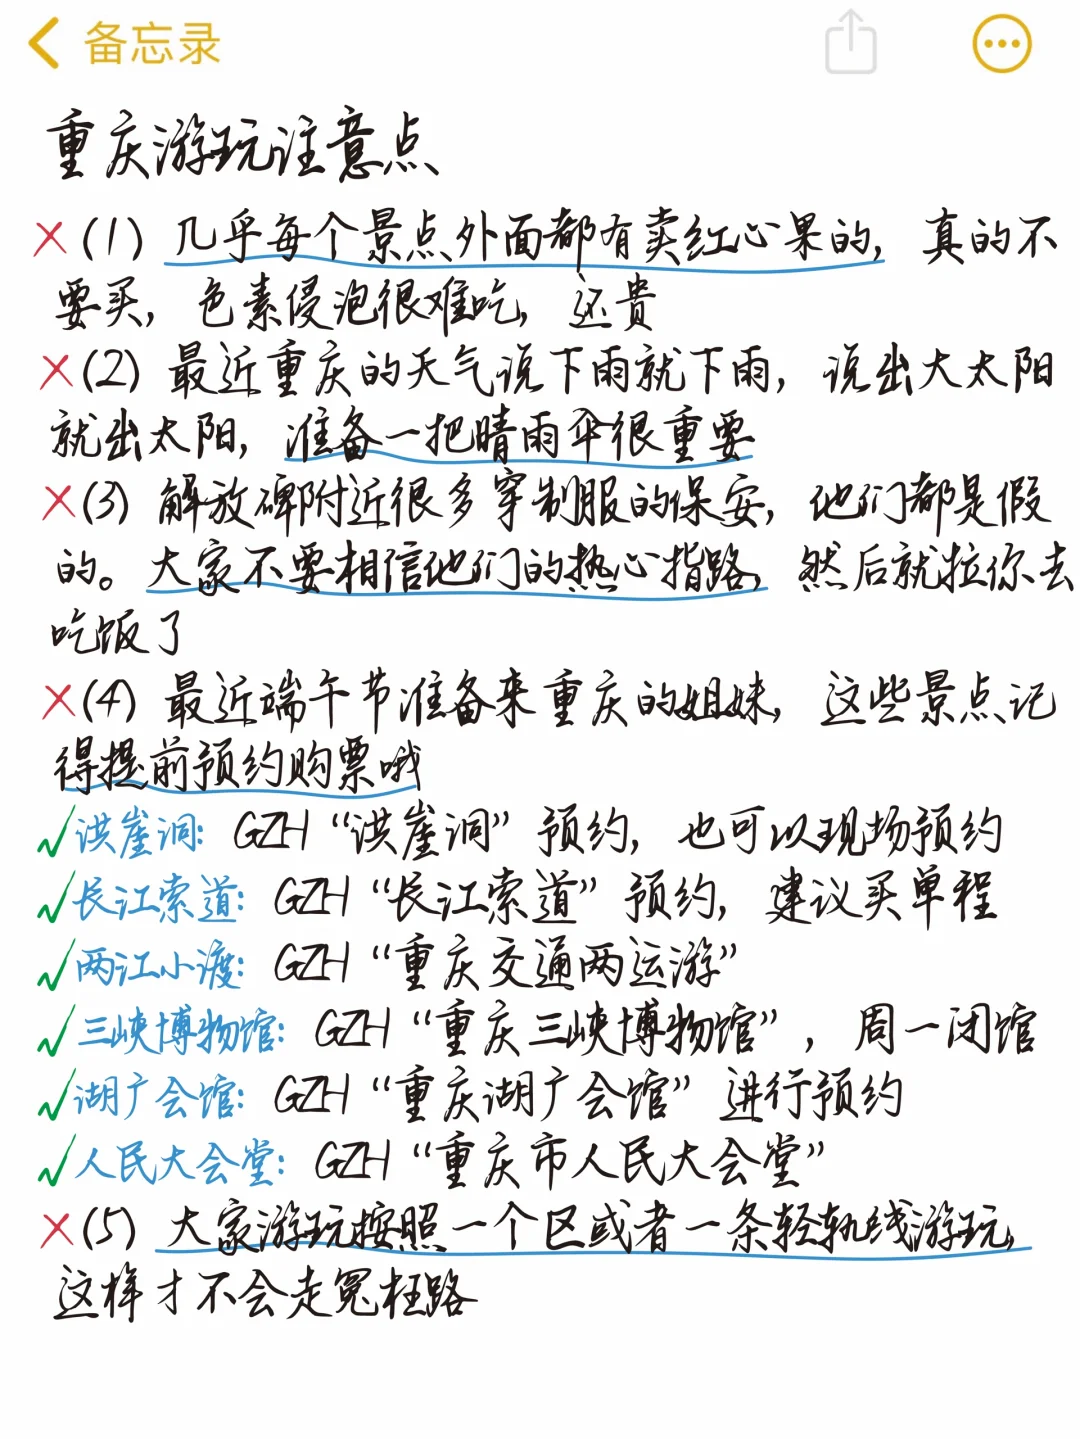 备忘录
重庆游玩注意点
×(1) 几乎每个景点外面都有卖红心果的，真的不
要买，色素侵泡很难吃，还贵
×(2) 最近重庆的天气说下雨就下雨，说出大太阳
就出太阳，准备一把晴雨伞很重要
×(3) 解放碑附近很多穿制服的保安，他们都是假
的。大家不要相信他们的热心指路，然后就拉你去
吃饭了
×(4) 最近端午节准备来重庆的姐妹，这些景点记
得提前预约购票哦
√洪崖洞：GZH“洪崖洞”预约，也可以现场预约
√长江索道：GZH“长江索道”预约，建议买单程
√两江小渡：GZH“重庆交通两运游”
√三峡博物馆：GZH“重庆三峡博物馆”，周一闭馆
√湖广会馆：GZH“重庆湖广会馆”进行预约
√人民大会堂：GZH“重庆市人民大会堂”
×(5) 大家游玩按照一个区或者一条轻轨线游玩，
这样才不会走冤枉路